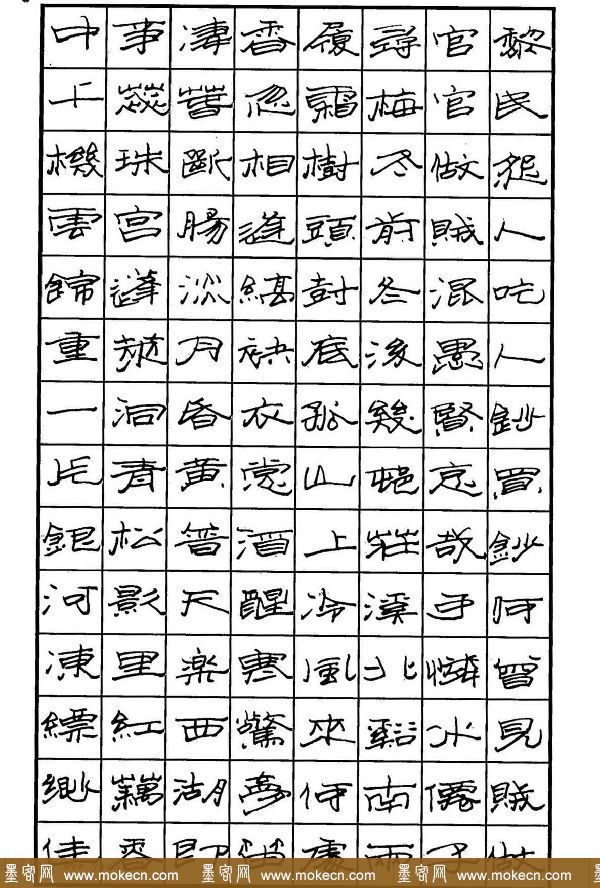 黎民怨人吃人鈔買鈔何曾見賊做
官官做賊混愚賢哀哉可憐水僊子
尋梅冬前冬後幾邨莊溪北谿南兩
履霜樹頭樹底孤山上冷風來何處
香忽相逢縞袂衣裳酒醒寒驚夢笛
淒春斷腸淡月昏黃普天樂西湖即
事蕊珠宮蓬萊洞青松影里紅藕香
中千機雲錦重一片銀河凍縹緲佳
墨客网 www.mokecn.com 墨客网 www.mokecn.com 墨客网 www.mokecn.com